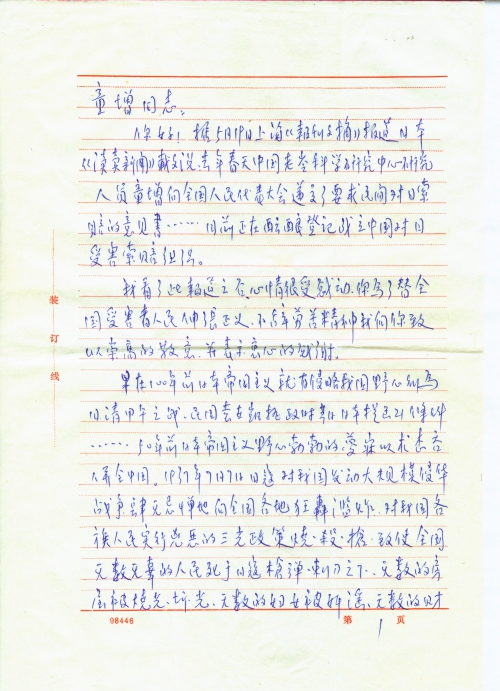 童增同志:
你好!据5月19日上海《报刊文摘》报道日本
《读卖新闻》载文说去年春天中国老龄科学研究中心研究
人员童增向全国人民代表大会递交了要求民间对日索
赔的意见书……目前正在酝酿登记成立中国对日
受害索赔组织。
我看了此报道之后,心情很受感动,你为了替全
国受害者人民伸张正义、不辞辛劳苦精神我向你致
以崇高的敬意,并表示衷心的感谢。
早在100年前日本帝国主义就有侵略我国野心,
日清甲午之战、民国袁世凯执政时与日本提出21条件
……50年前日本帝国主义野心勃勃的梦寐以求想吞
并全中国。1937年7月7日日寇对我国发动大规模侵华
战争,肆无忌惮地向全国各地狂轰滥炸,对我国各
族人民实行凶恶的三光政策烧、殺、搶、致使全国
无数无辜的人民死于日寇槍弹、刺刀之下、无数的房
屋被烧光、坏光、无数的妇女被奸淫、无数的财
装
订
线
98446
第 1 页